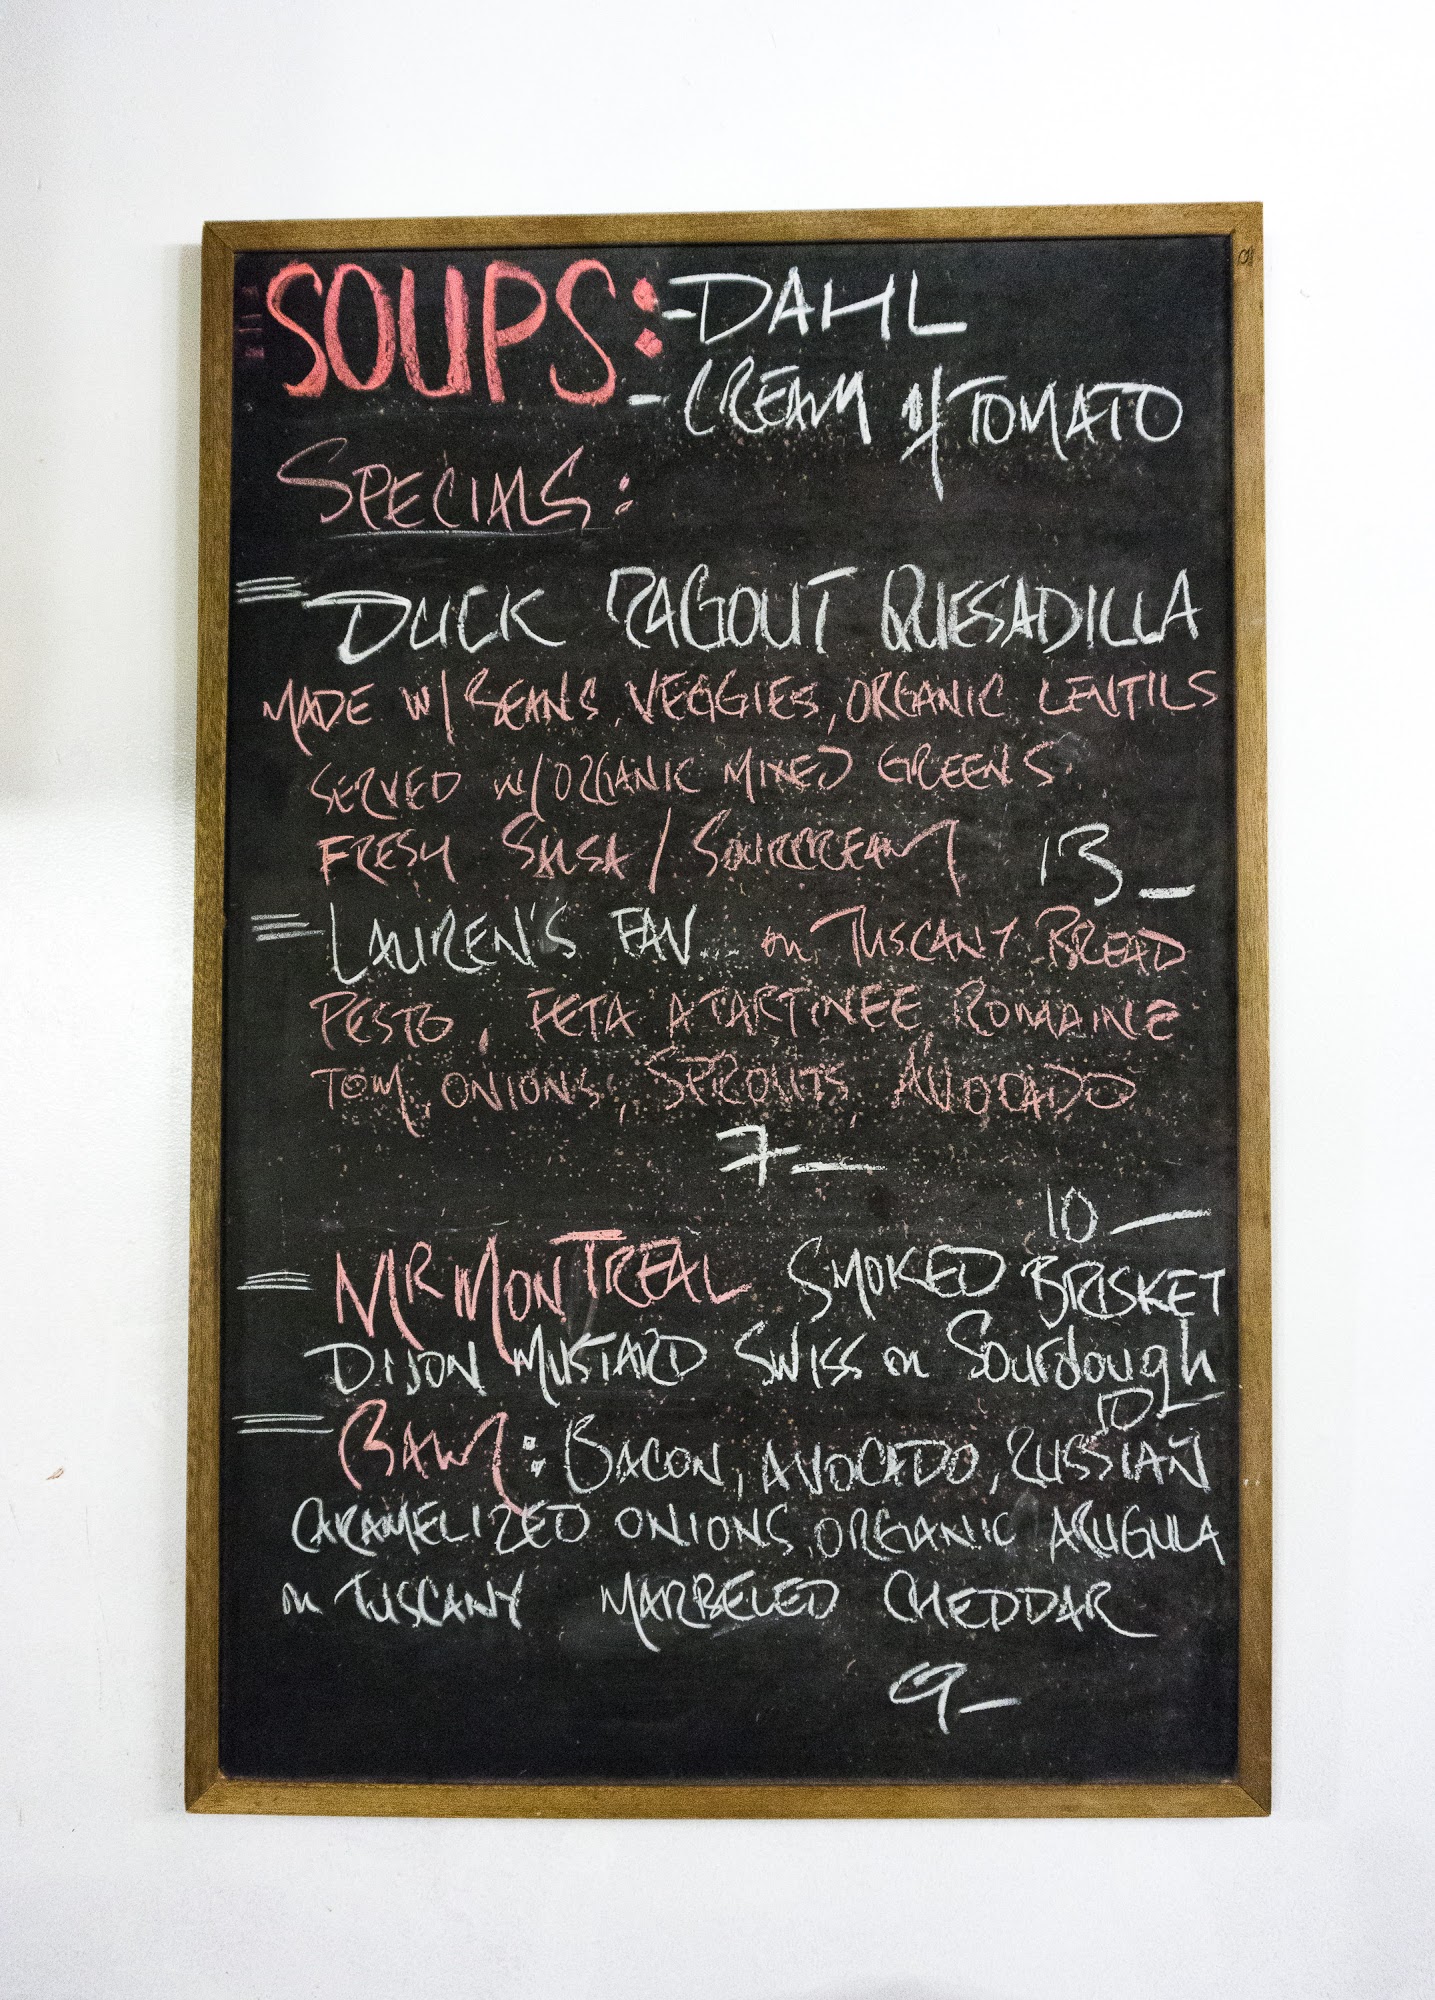 SOUPS: -DAHL
- CREAM of TOMATO
SPECIALS:
DUCK RAGOUT QUESADILLA
MADE W/ BEANS, VEGGIES, ORGANIC LENTILS
SERVED W/ORGANIC MIXED GREENS
FRESH SALSA / SOURCREAM 13_
LAUREN'S FAV on TUSCANY BREAD
PESTO, FETA ROMAINE
TOM, ONIONS, SPROUTS, AVOCADO
7_
10_
MR MONTREAL SMOKED BRISKET
DIJON MUSTARD SWISS on Sourdough
10_
BAM: BACON, AVOCADO, RUSSIAN
CARAMELIZED ONIONS, ORGANIC ARUGULA
on TUSCANY MARBELED CHEDDAR
9_